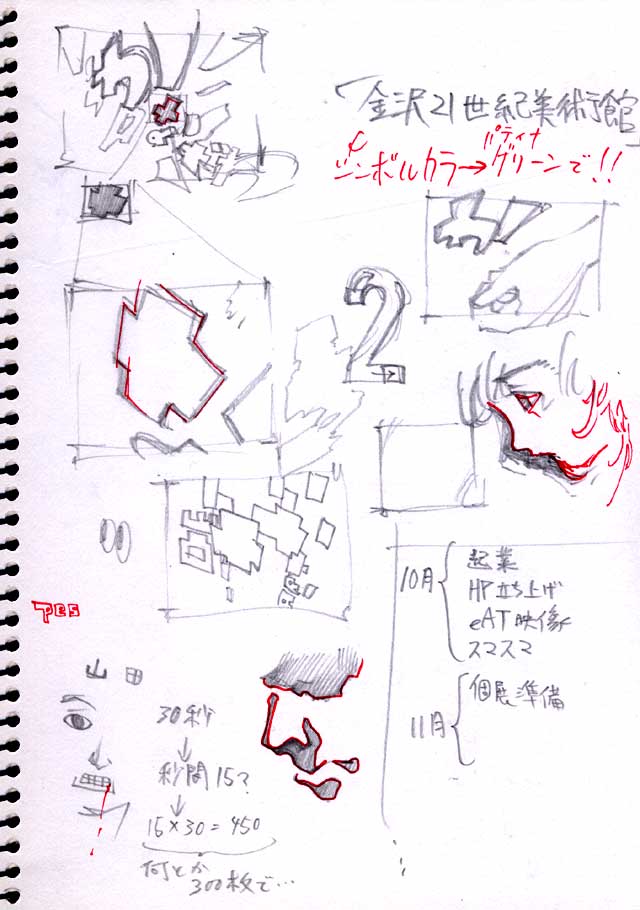 「金沢21世紀美術館」
パティナ
シンボルカラー→グリーンで!!
わ
2
10月
起業
HP立ち上げ
eAT映像
スマスマ
11月
個展準備
PES
山田
30秒
↓
秒間15?
↓
15×30=450
何とか
300枚で…